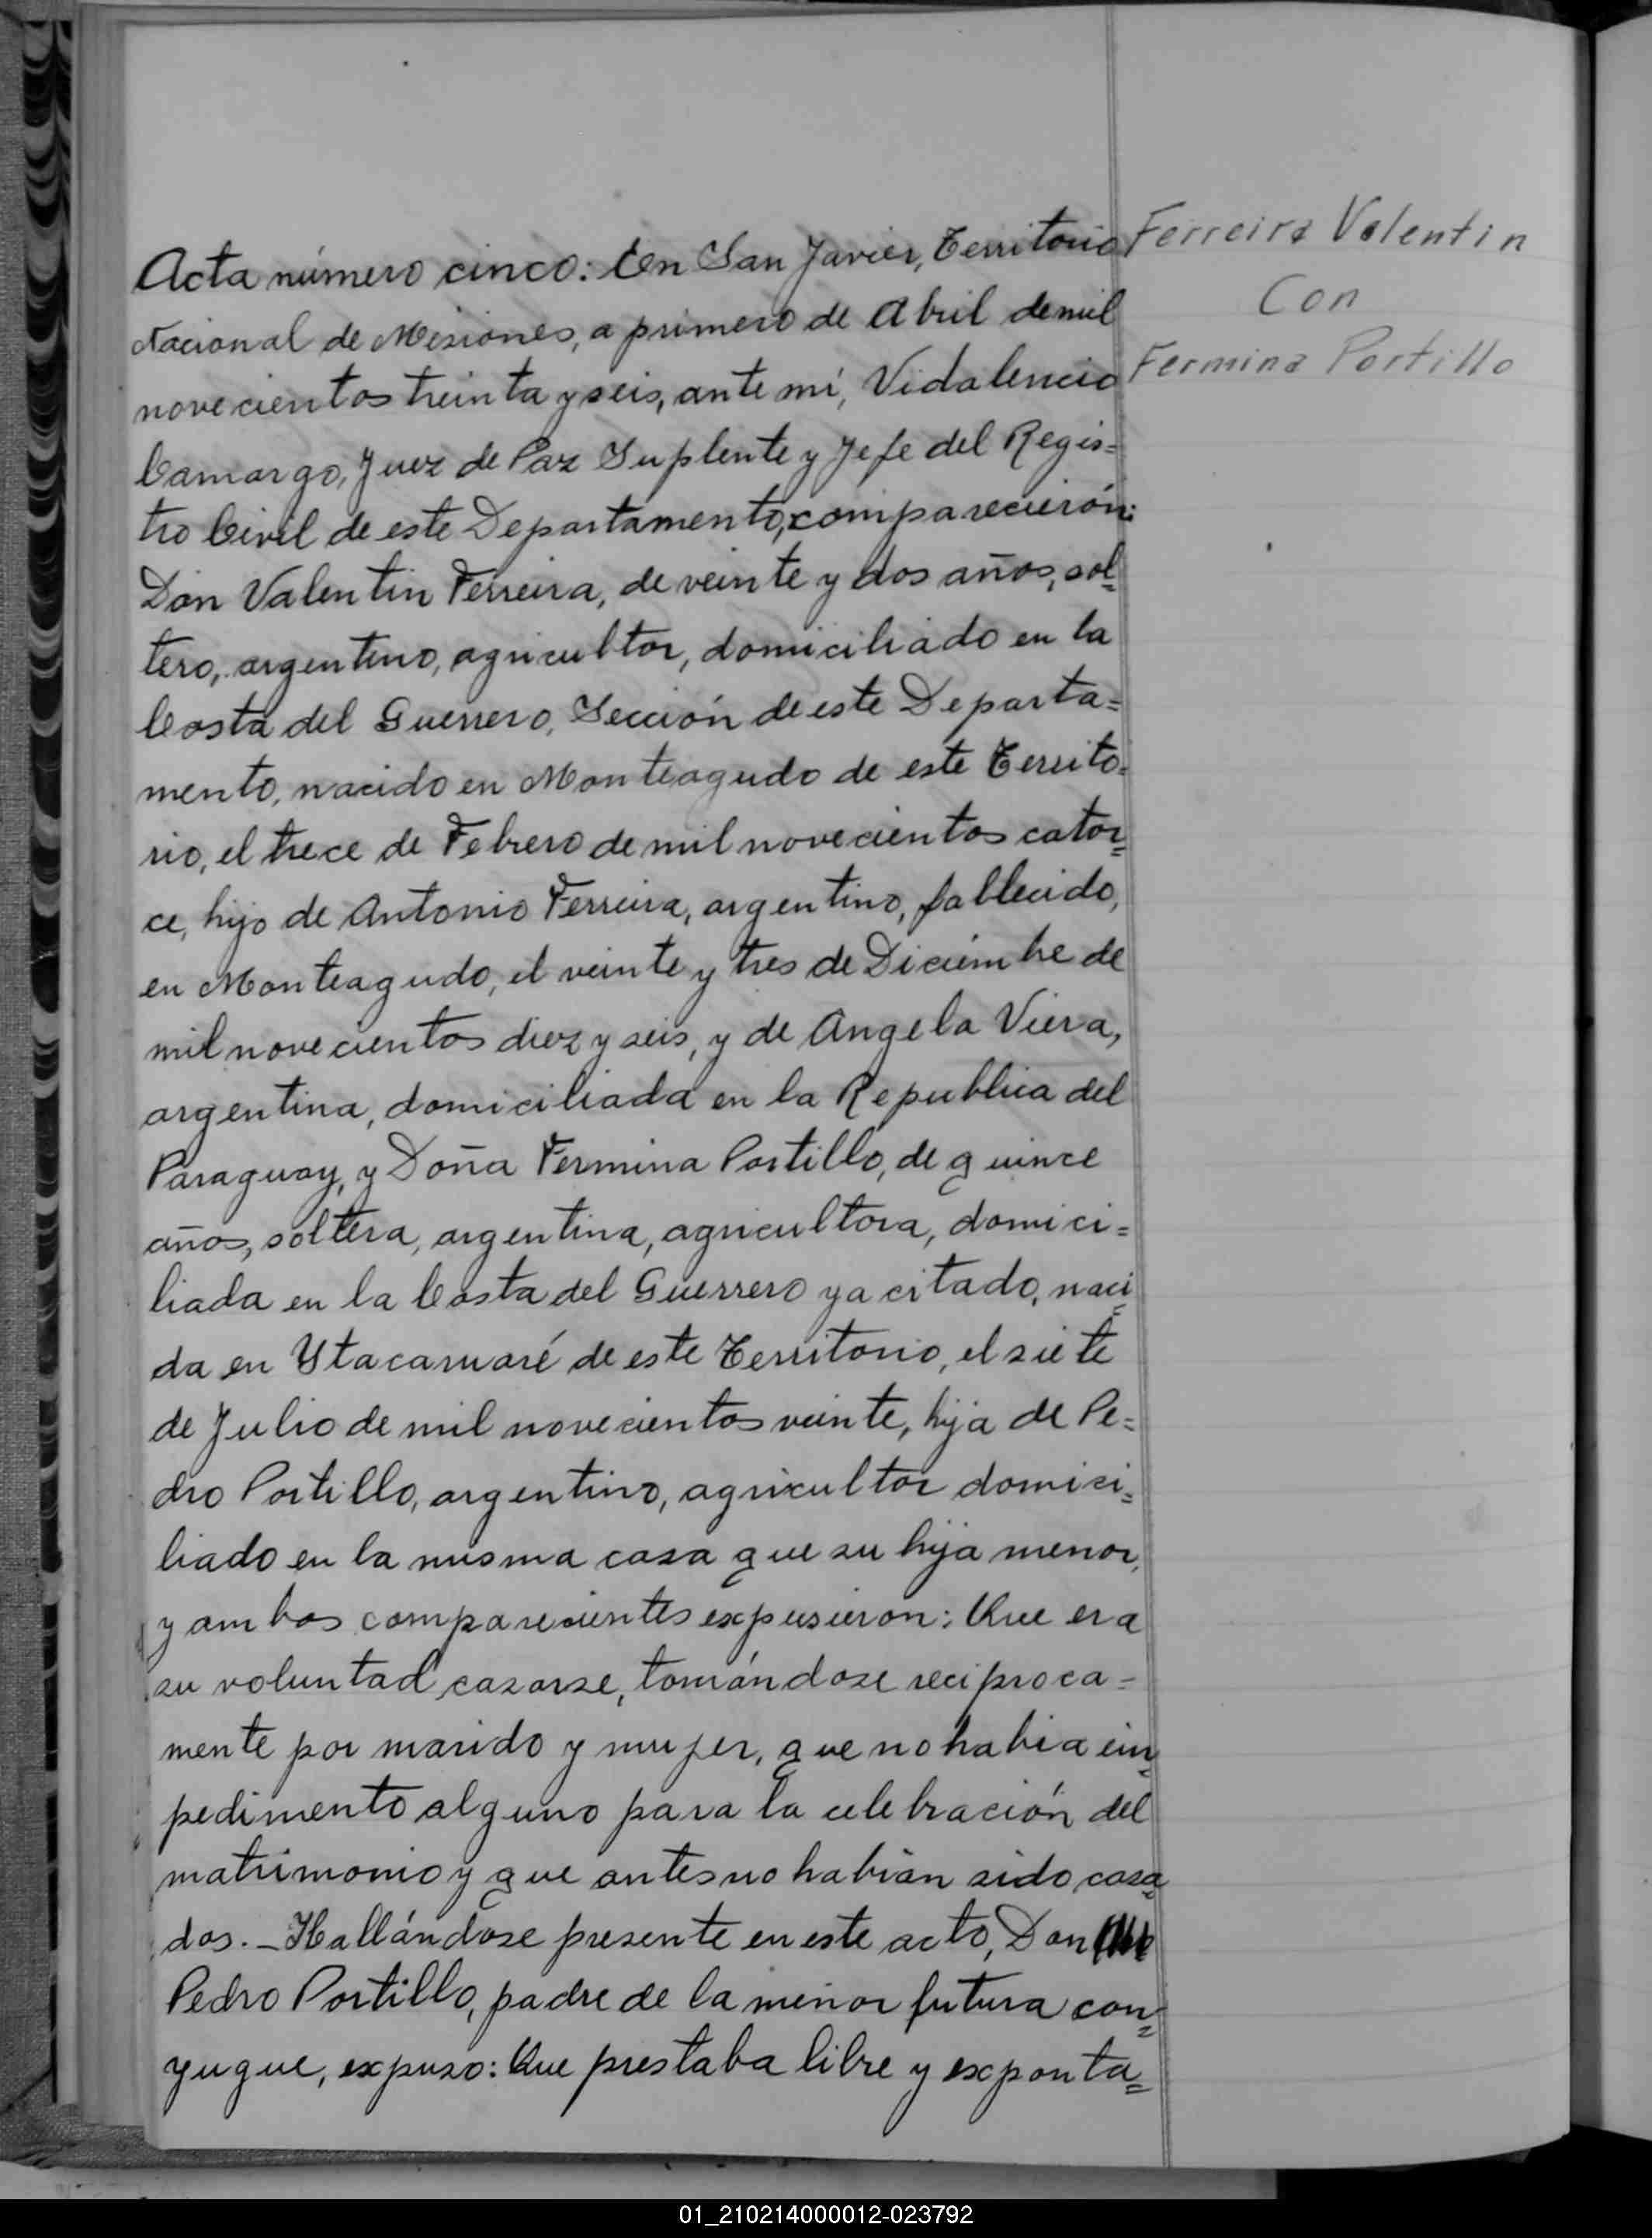 Acta número cinco: En San Javier, Territorio
Nacional de Misiones, a primero de Abril de mil
novecientos treinta y seis, ante mí, Vidalencio
Camargo, Juez de Paz Suplente y Jefe del Regis=
tro Civil de este Departamento, comparecierón:
Don Valentin Ferreira, de veinte y dos años, sol=
tero, argentino, agricultor, domiciliado en la
Costa del Guerrero, Sección de este Departa=
mento, nacido en Monteagudo de este Territo=
rio, el trece de Febrero de mil novecientos cator=
ce, hijo de Antonio Ferreira, argentino, fallecido,
en Monteagudo, el veinte y tres de Diciembre de
mil novecientos diez y seis, y de Angela Viera,
argentina, domiciliada en la Republica del
Paraguay, y Doña Fermina Portillo, de quince
años, soltera, argentina, agricultora, domici=
liada en la Costa del Guerrero ya citado, naci=
da en Ytacaruaré de este Territorio, el siete
de Julio de mil novecientos veinte, hija de Pe=
dro Portillo, argentino, agricultor domici=
liado en la misma casa que su hija menor,
y ambos comparecientes expusieron: Que era
su voluntad casarse, tomándose reciproca-
mente por marido y mujer, que no habia im=
pedimento alguno para la celebración del
matrimonio y que antes no habian sido casa=
dos. _ Hallándose presente en este acto, Don
Pedro Portillo, padre de la menor futura con=
yugue, expuso: Que prestaba libre y exponta=
Ferreira Valentin
Con
Fermina Portillo
01_210214000012-023792